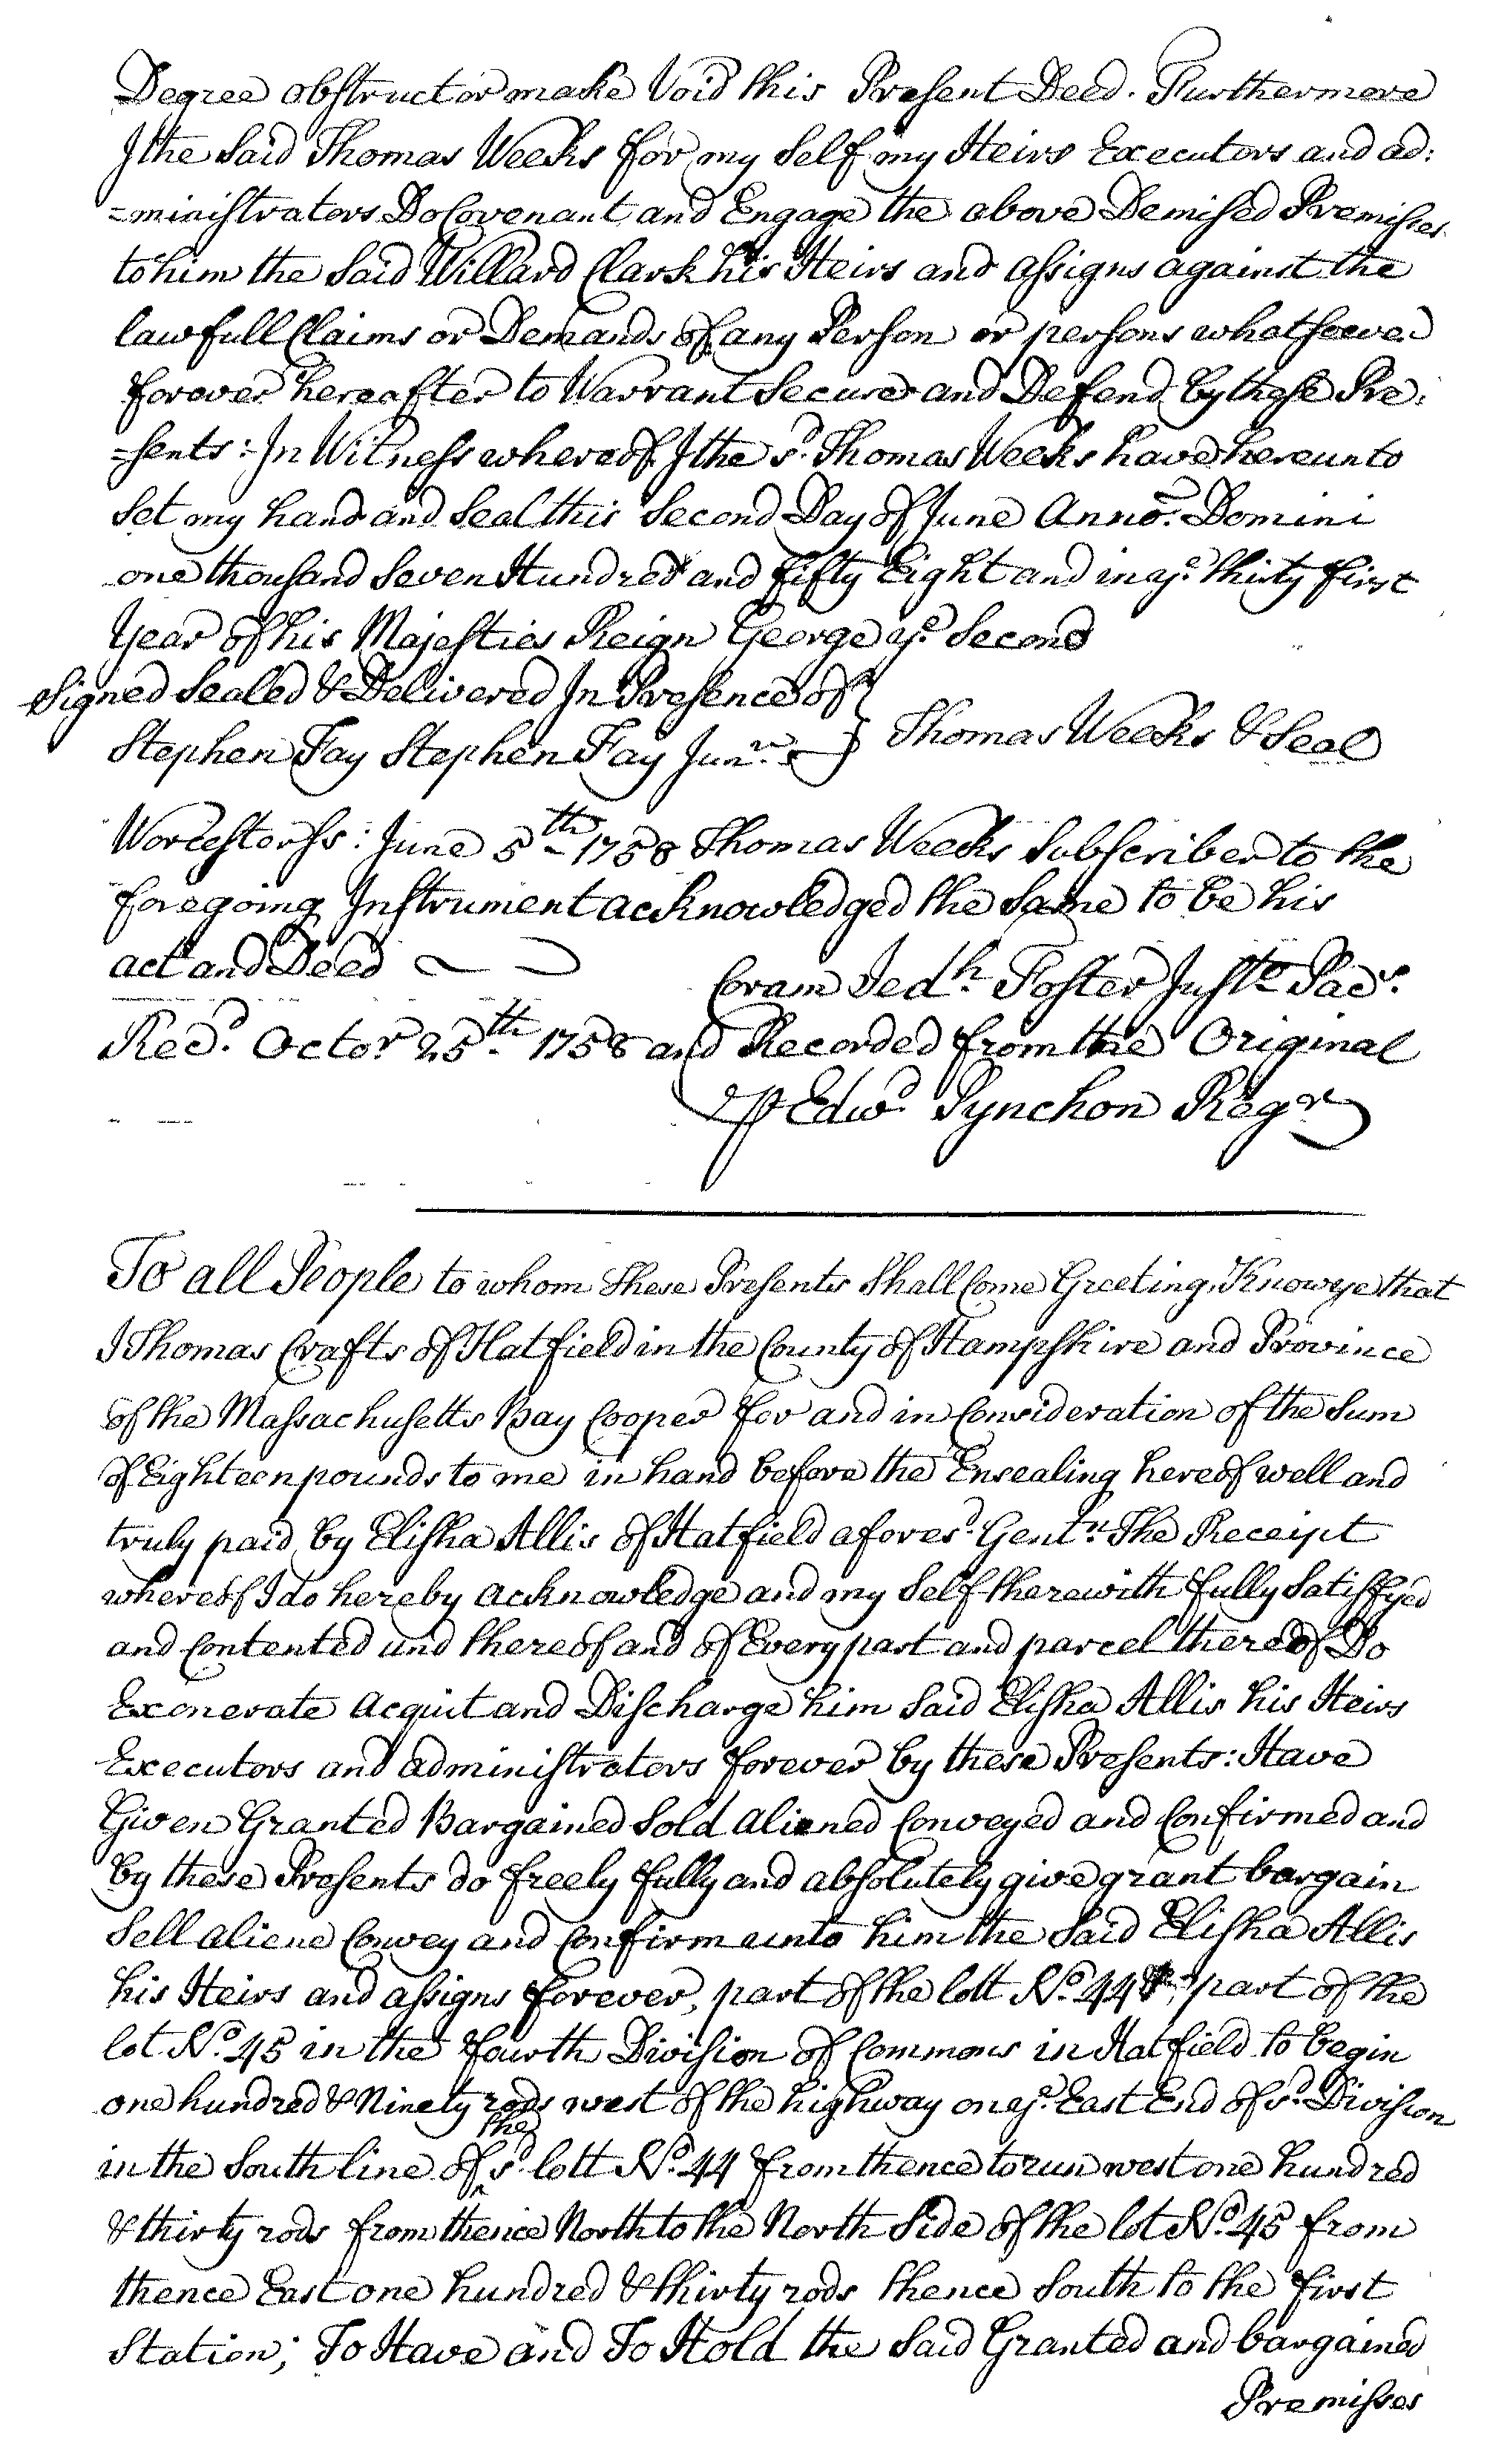 Degree obstruct or make Void this Present Deed. Furthermore
I the Said Thomas Weeks for my Self my Heirs Executors and ad:
=ministrators Do Covenant and Engage the above Demised Premisses
to him the Said Willard Clark his Heirs and assigns against the
lawfull Claims or Demands of any Person or persons whatsoever
forever hereafter to Warrant Secure and Defend by these Pre:
=sents: In Witness whereof I the sd. Thomas Weeks have hereunto
Set my hand and Seal this Second Day of June Anno. Domini
one thousand Seven Hundred and fifty Eight and in ye. thirty first
Year of his Majesties Reign George ye. Second
Signed Sealed & Delivered In Presence of }
Stephen Fay Stephen Fay Junr. } Thomas Weeks & Seal
Worcester ss: June 5th 1758 Thomas Weeks Subscriber to the
foregoing Instrument acknowledged the Same to be his
act and Deed
Coram Jedh. Foster Juste Pacs.
Recd. Octor 25th. 1758 and Recorded from the Original
P Edwd. Pynchon Regr
To all People to whom these Presents Shall Come Greeting, Know ye that
I Thomas Crafts of Hatfield in the County of Hampshire and Province
of the Massachusetts Bay Cooper for and in Consideration of the Sum
of Eighteen pounds to me in hand before the Ensealing hereof well and
truly paid by Elisha Allis of Hatfield aforesd. Gentn. The Receipt
whereof I do hereby acknowledge and my Self therewith fully Satisfyed
and Contented and thereof and of Every part and parcel thereof Do
Exonerate acquit and Discharge him Said Elisha Allis his Heirs
Executors and administrators forever by these Presents: Have
Given Granted Bargained Sold aliened Conveyed and Confirmed and
by these Presents do freely fully and absolutely give grant bargain
Sell aliene Convey and Confirm unto him the Said Elisha Allis
his Heirs and assigns forever, part of the lott No. 44 & part of the
lot No. 45 in the fourth Division of Commons in Hatfield to begin
one hundred & Ninety rods west of the highway on ye. East End of sd. Division
in the South line of the sd lott No. 44 from thence to run west one hundred
& thirty rods from thence North to the North Side of the lot No. 45 from
thence East one hundred & thirty rods thence South to the first
Station; To Have and To Hold the Said Granted and bargained
Premisses